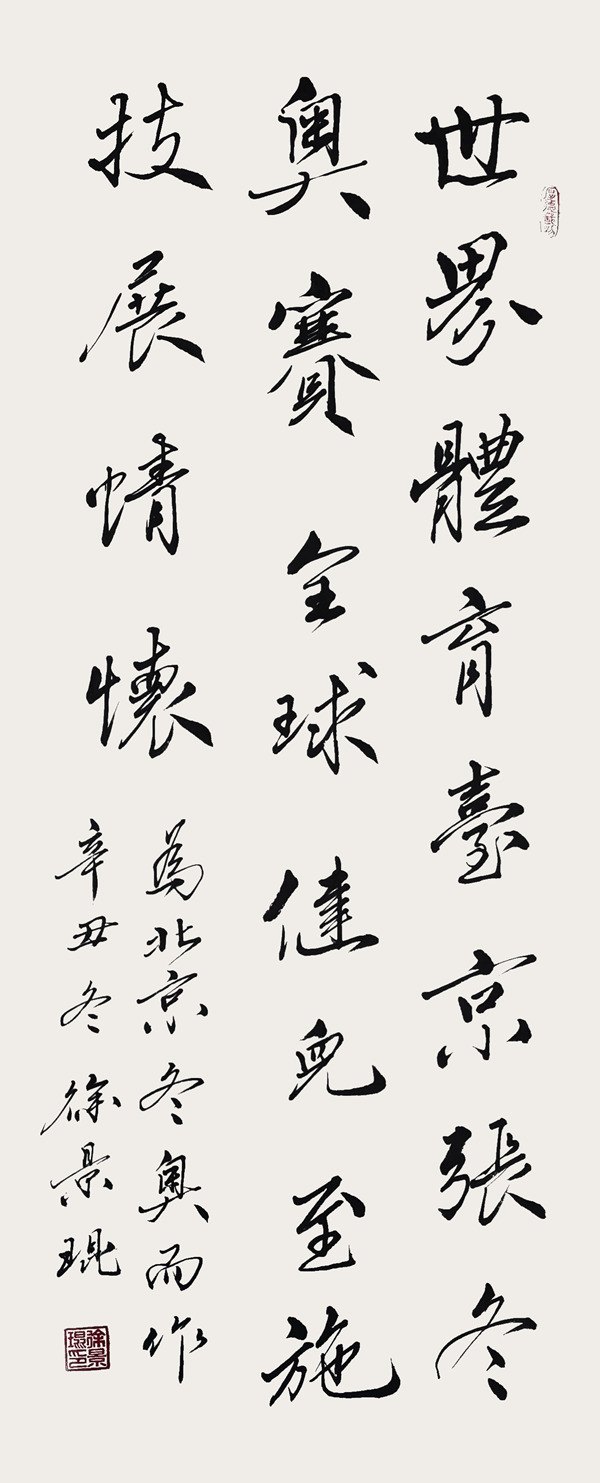 世界體育臺京張冬
奧賽全球健兒至施
技展情懷
為北京冬奧而作
辛丑冬徐景琨
徐景琨印